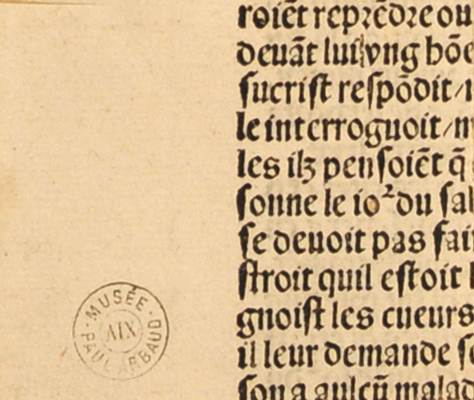 roiēt reprēdre ou
deuāt lui vng hōe
sucrist respōdit/
le interroguoit/
les ilʒ pensoiēt q̄
sonne le io² du
se deuoit pas
stroit quil estoit
gnoist les cueurs
il leur demande
son a aulcū malad
MUSÉE
AIX
PAUL ARBAUD